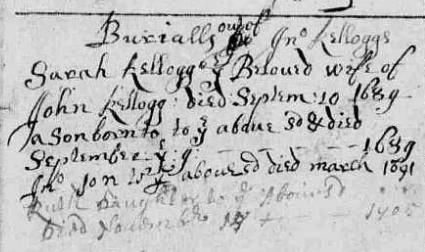 Burialls out of Jno Kelloggs
Sarah Kellogg ye Beloued wife of
John Kellogg died Septem: 10 1689
a son born to to ye aboue sd & died
September ye 9: 1689
Jno son to ye aboue sd died march 1691
Ruth Daughter to ye Abouesd
Died Novembr 1705